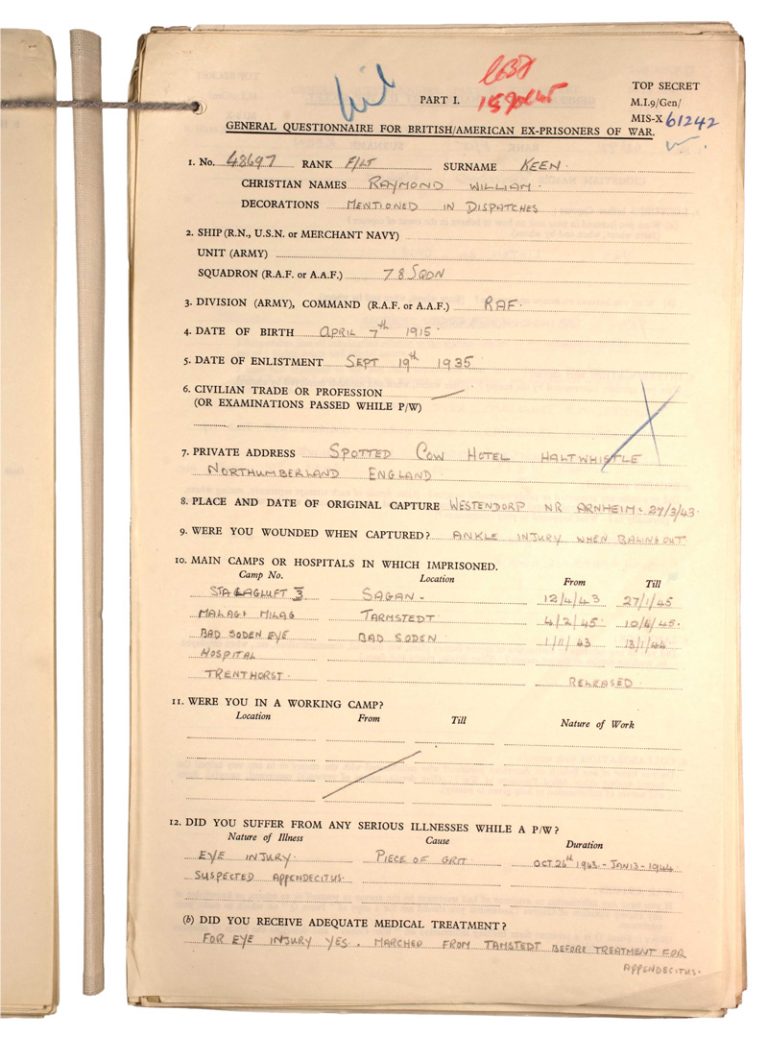 TOP SECRET
PART I.
M.I.9/Gen/
MIS-X 61242
GENERAL QUESTIONNAIRE FOR BRITISH/AMERICAN EX-PRISONERS OF WAR.
1. No. 48697 RANK F/LT SURNAME KEEN.
CHRISTIAN NAMES RAYMOND WILLIAM.
DECORATIONS MENTIONED IN DISPATCHES
2. SHIP (R.N., U.S.N. or MERCHANT NAVY)
UNIT (ARMY)
SQUADRON (R.A.F. or A.A.F.) 78 SQDN
3. DIVISION (ARMY), COMMAND (R.A.F. or A.A.F.) RAF.
4. DATE OF BIRTH APRIL 7th 1915.
5. DATE OF ENLISTMENT SEPT 19th 1935
6. CIVILIAN TRADE OR PROFESSION
(OR EXAMINATIONS PASSED WHILE P/W)
7. PRIVATE ADDRESS SPOTTED COW HOTEL HALTWHISTLE
NORTHUMBERLAND ENGLAND
8. PLACE AND DATE OF ORIGINAL CAPTURE WESTENDORP NR ARNHEIM. 27/3/43.
9. WERE YOU WOUNDED WHEN CAPTURED? ANKLE INJURY WHEN BALING OUT
10. MAIN CAMPS OR HOSPITALS IN WHICH IMPRISONED.
Camp No. Location From Till
STALAGLUFT 3 SAGAN. 12/4/43 27/1/45
MALAG MILAG TARMSTEDT. 4/2/45. 10/4/45.
BAD SODEN EYE BAD SODEN 1/11/43 13/1/44
HOSPITAL
TRENTHORST. RELEASED.
11. WERE YOU IN A WORKING CAMP?
Location From Till Nature of Work
12. DID YOU SUFFER FROM ANY SERIOUS ILLNESSES WHILE A P/W?
Nature of Illness Cause Duration
EYE INJURY. PIECE OF GRIT OCT. 26th 1943 - JAN 13 - 1944
SUSPECTED APPENDECITUS.
(b) DID YOU RECEIVE ADEQUATE MEDICAL TREATMENT?
FOR EYE INJURY YES. MARCHED FROM TAMSTEDT BEFORE TREATMENT FOR
APPENDECITUS.